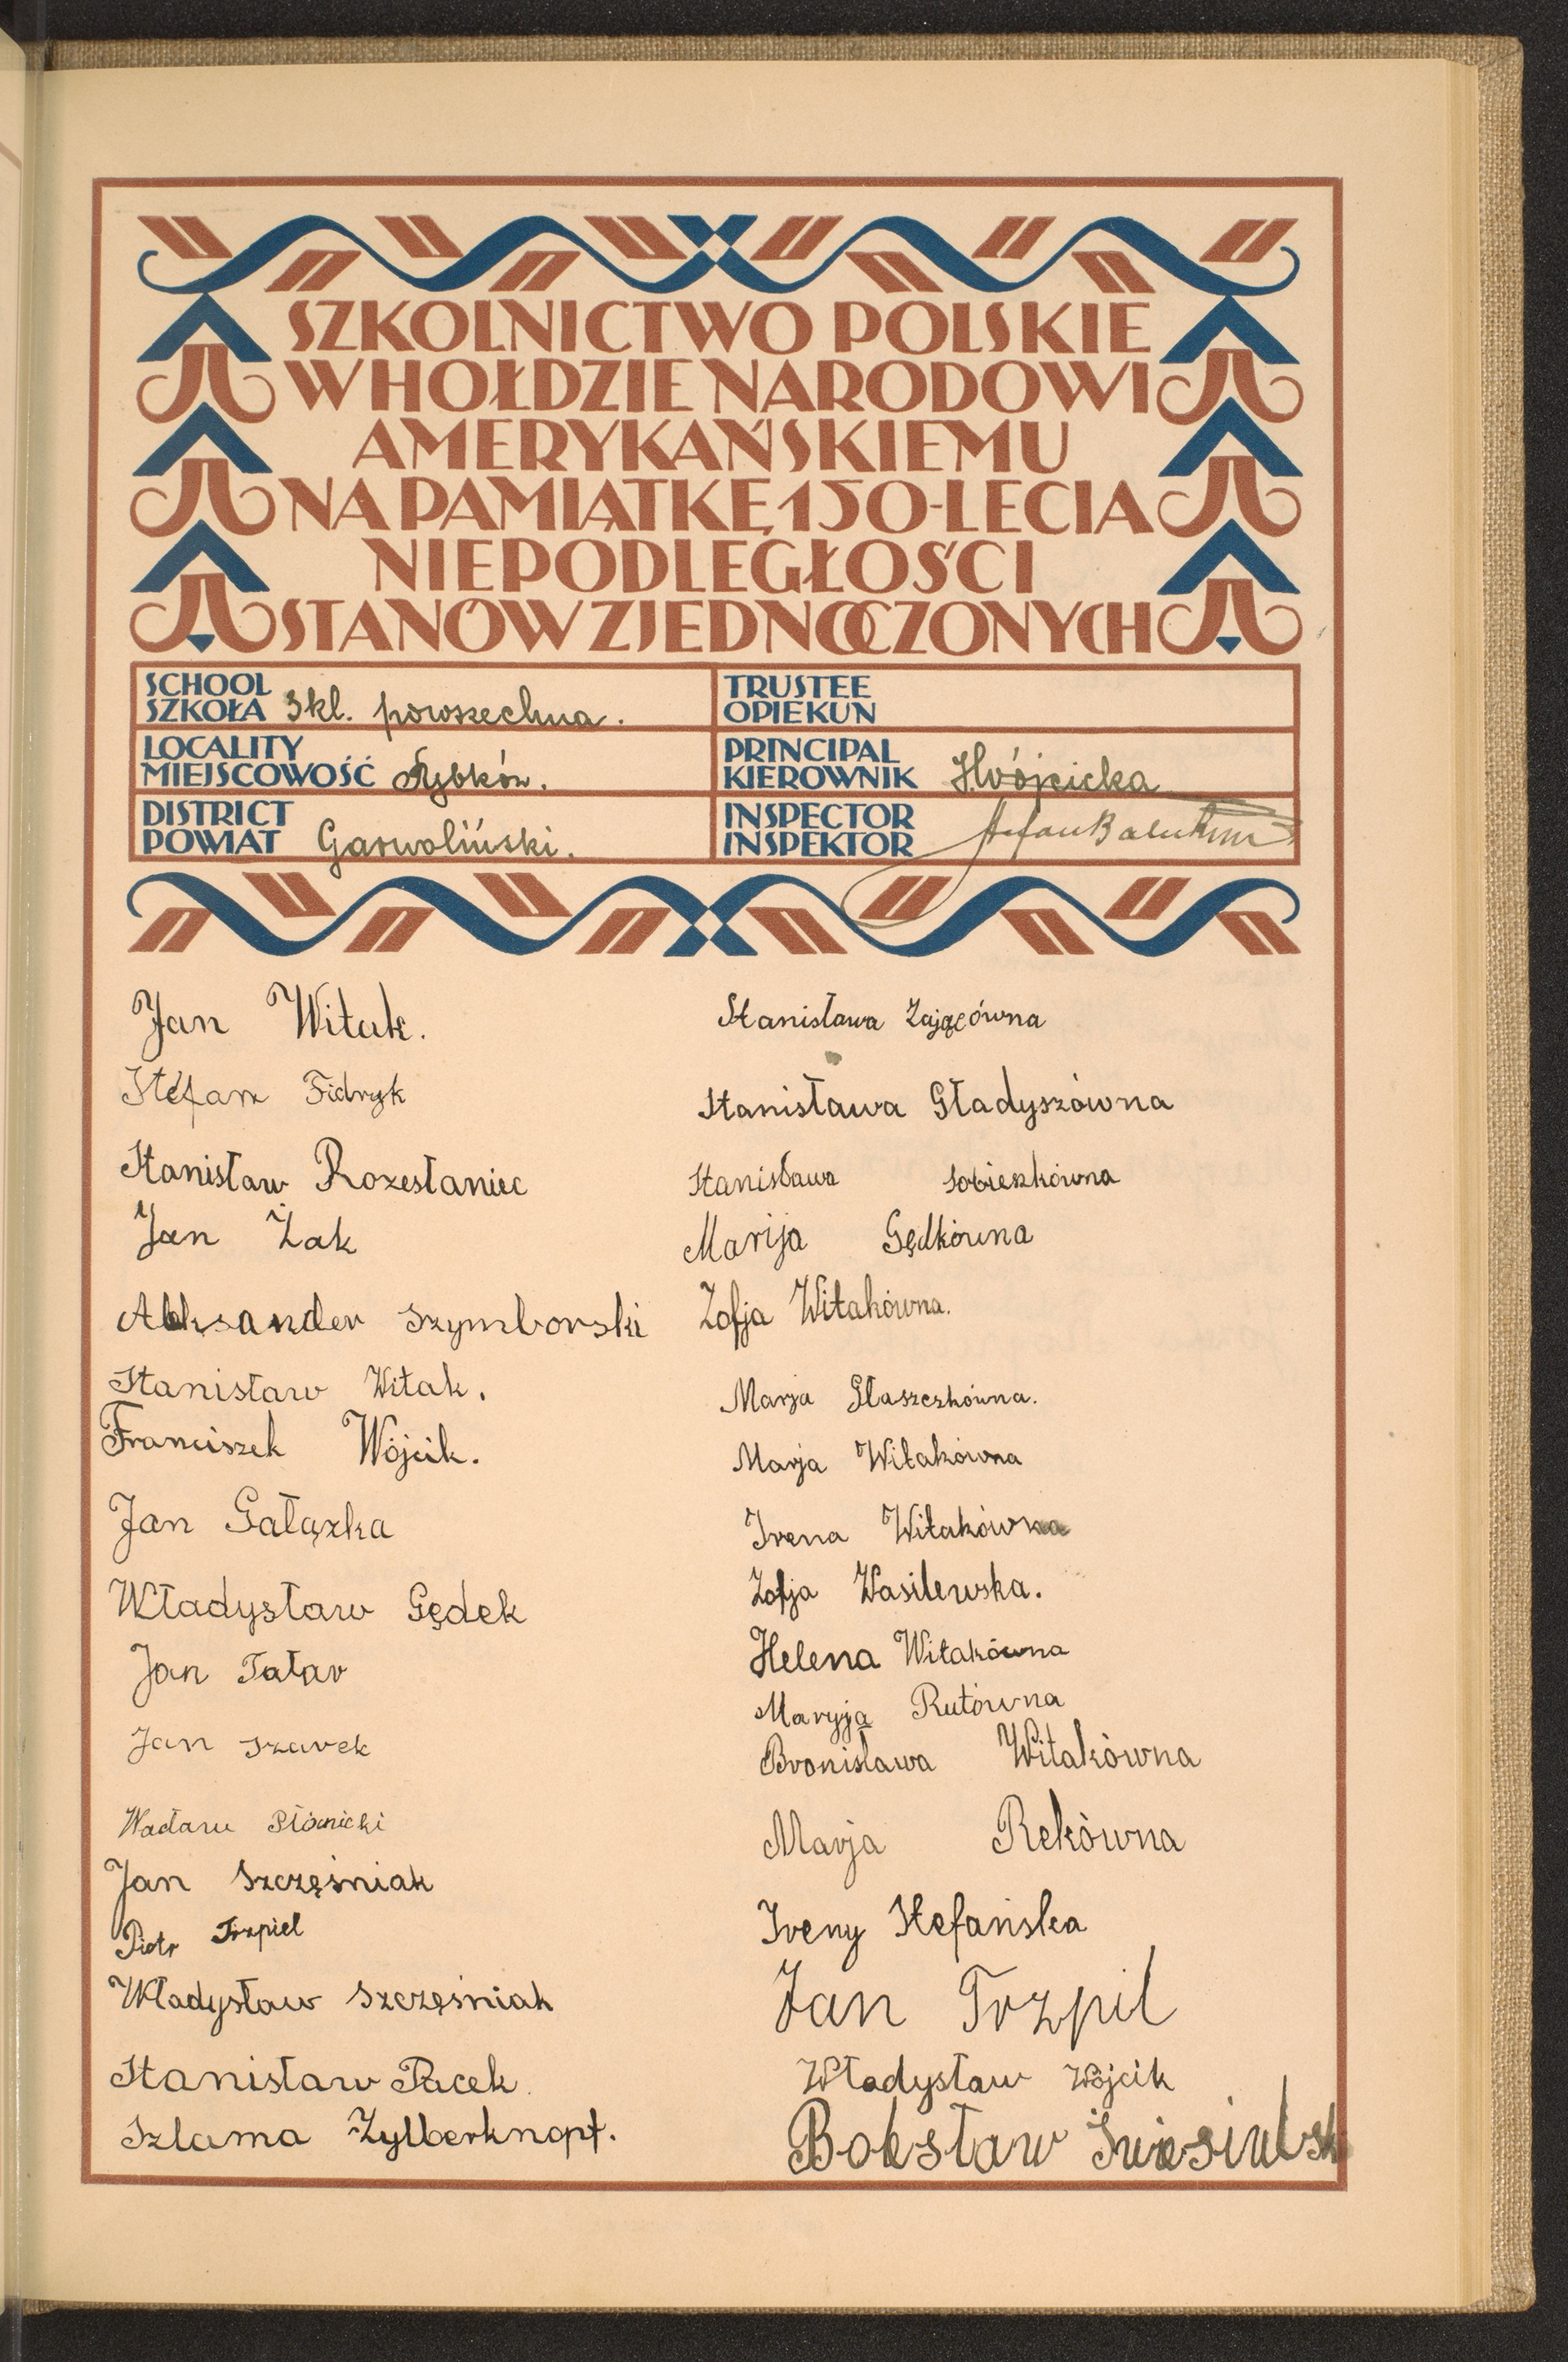 SZKOLNICTWO POLSKIE
W HOŁDZIE NARODOWI
AMERYKAŃSKIEMU
NA PAMIĄTKĘ 150-LECIA
NIEPODLEGŁOŚCI
STANÓW ZJEDNOCZONYCH
SCHOOL
SZKOŁA Szkl. powszechna.
LOCALITY
MIEJSCOWOŚĆ Rybków.
DISTRICT
POWIAT Garwoliński.
TRUSTEE
OPIEKUN
PRINCIPAL
KIEROWNIK H. Wójcicka
INSPECTOR
INSPEKTOR Stefan
Jan Witak.
Stefan Fidryk
Stanisław Rozesłaniec
Jan Żak
Aleksander Szymborski
Stanisław Witak.
Franciszek Wójcik.
Jan Gałązka
Władysław Gędek
Jan Tatar
Jan Szarek
Wacław Płócnicki
Jan Szczęśniak
Piotr Trzpiel
Władysław Szczęśniak
Stanisław Pacek
Szlama Zylberknopf.
Stanisława Zającówna
Stanisława Gładyszówna
Stanisława Sobieszkówna
Marija Gędkówna
Zofja Witakówna.
Marja Głaszczkówna.
Marja Witakówna
Irena Witakówna
Zofja Wasilewska.
Helena Witakówna
Maryja Rutówna
Bronisława Witakówna
Marja Rekówna
Ireny Stefańska
Jan Trzpil
Władysław Wójcik
Bolesław